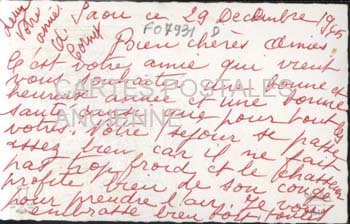 Saou ce 29 Decembre 1945
F07931 D
Bien chères Amies
C'est votre amie qui vient
vous souhaiter bonne et
heureuse année et une bonne
santé ainsi que pour tous les
votres. Votre séjour se passe
assez bien car il ne fait
pas trop froid et le
profite bien de son congé
pour prendre l'air. Je vous
embrasse bien fort toutes
Votre
amie
CARTES POSTALES
ANCIENNE